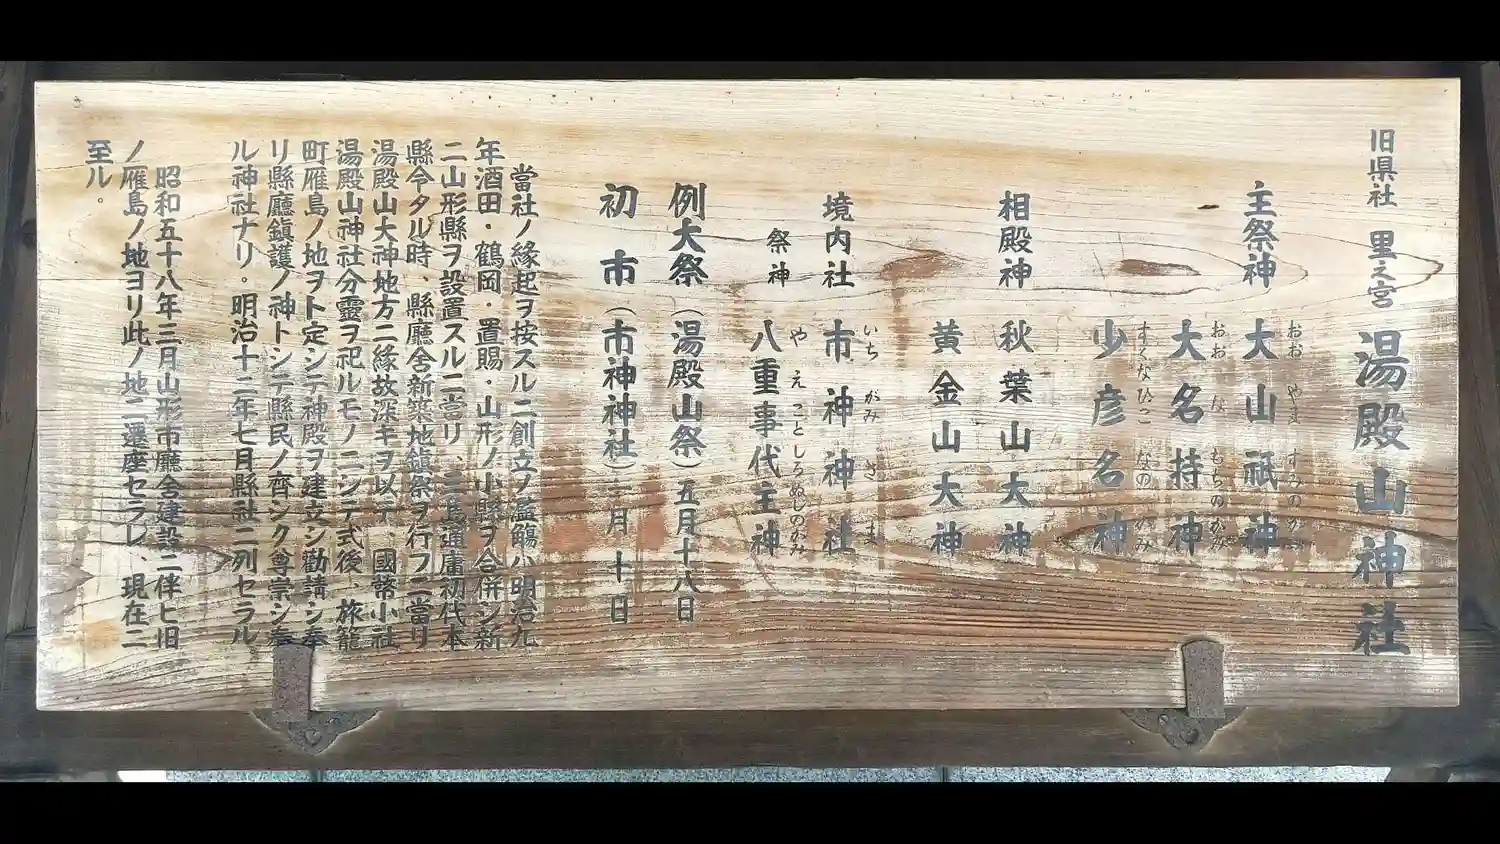 旧県社 里之宮 湯殿山神社
主祭神 大山祇神
おお やま ずみのかみ
大名持神
おお な むちのかみ
少彦名神
すくなひこ なの かみ
相殿神 秋葉山大神
黄金山大神
境内社 市神神社
いち がみ
祭神 八重事代主神
や え こと しろ ぬしのかみ
例大祭(湯殿山祭)五月十八日
初市(市神神社)一月十日
當社ノ緣起ヲ按スルニ創立ノ濫觴ハ明治九
年酒田・鶴岡・置賜・山形ノ小縣ヲ合併シ新
ニ山形縣ヲ設置スルニ當リ、三島通庸初代本
縣令タル時、縣廳舍新築地鎭祭ヲ行フニ當リ
湯殿山大神地方ニ緣故深キヲ以テ、國幣小社
湯殿山神社分靈ヲ祀ルモノニシテ式後、旅籠
町雁島ノ地ヲト定シテ神殿ヲ建立シ勸請シ奉
リ縣廳鎭護ノ神トシテ縣民ノ齊シク尊崇シ奉
ル神社ナリ。明治十二年七月縣社ニ列セラル
昭和五十八年三月山形市廳舍建設ニ伴ヒ旧
ノ雁島ノ地ヨリ此ノ地ニ遷座セラレ、現在ニ
至ル。